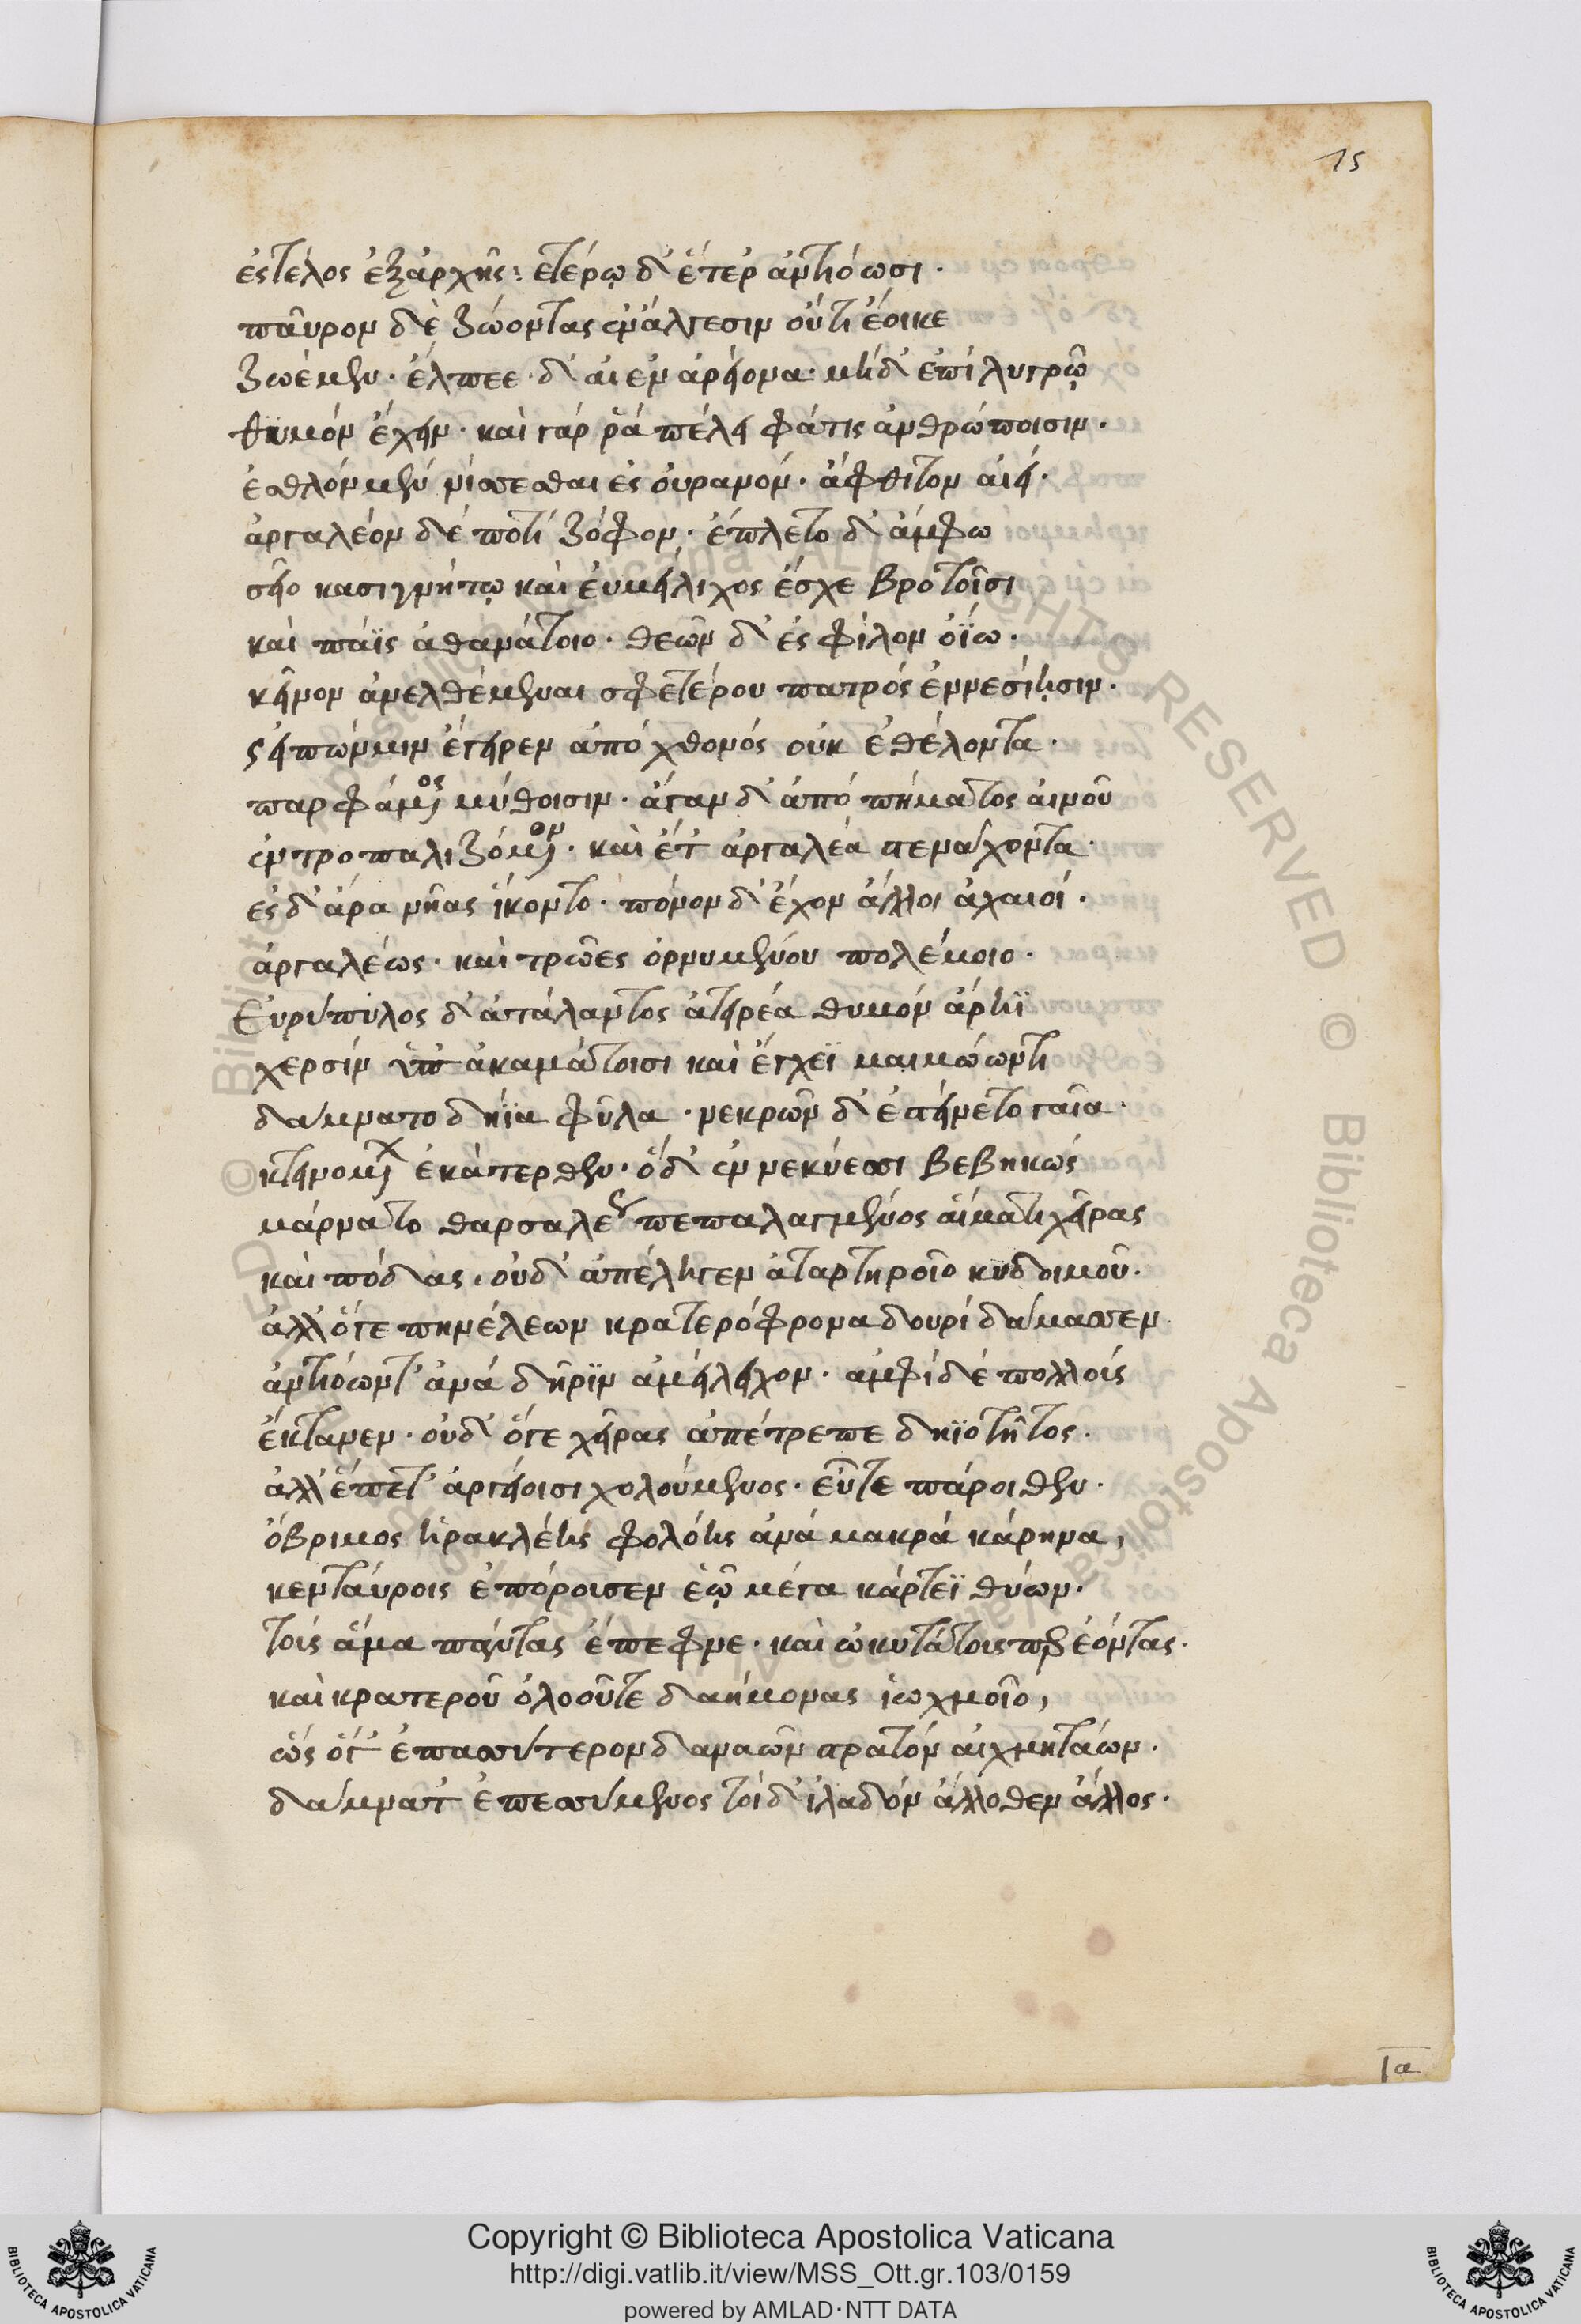 15
ἐς τέλος ἐξ ἀρχῆς· ἑτέρῳ δ' ἕτερ ἀντιόωσι·
παῦρον δὲ ζώοντας ἐν ἄλγεσιν οὔτι ἔοικε
ζωέμεν· ἔλπεε· δ' αἰὲν ἀρείονα· μὴ δ' ἐπὶ λυγρῷ
θυμὸν ἔχειν· καὶ γάρ ῥα πέλει φάτις ἀνθρώποισιν·
ἐσθλὸν μὲν νίσσεσθαι ἐς οὐρανόν· ἄφθιτον αἰεί·
ἀργαλέον δὲ ποτὶ ζόφον· ἔπλετο δ' ἄμφω
σεῖο κασιγνήτῳ καὶ ἐυμείλιχος ἔσχε βροτοῖσι
καὶ πάϊς ἀθανάτοιο· θεῶν δ' ἐς φῖλον ὀΐω·
κεῖνον ἀνελθέμεναι σφετέρου πατρὸς ἐννεσίῃσιν·
ς εἰπών μιν ἔγειρεν ἀπὸ χθονὸς οὐκ ἐθέλοντα·
παρφάμενος μύθοισιν· ἄγαν δ' ἀπὸ πήματος αἰνοῦ
ἐντροπαλιζόμενον· καὶ ἔτ' ἀργαλέα στεναχοντα·
ἐς δ' ἄρα νῆας ἵκοντο· πόνον δ' ἔχον ἄλλοι ἀχαιοί·
ἀργαλέως· καὶ τρῶες ὀρνυμένου πολέμοιο·
Εὐρύπυλος δ' ἀτάλαντος ἀτειρέα θυμὸν ἄρηϊ
χερσὶν ὑπ' ἀκαμάτοισι καὶ ἔγχεϊ μαιμώωντι
δάμνατο δήϊα φῦλα· νεκρῶν δ' ἐστείνετο γαῖα·
κτεινομένων ἑκάτερθεν· ὅ δ' ἐν νεκύεσσι βεβηκώς
μάρνατο θαρσαλέως πεπαλαγμένος αἵματι χεῖρας
καὶ πόδας· οὐδ' ἀπέληγεν ἀταρτηροῖο κυδοιμοῦ·
ἀλλ' ὅγε πηνέλεων κρατερόφρονα δουρὶ δάμασσεν·
ἀντιόωντ' ἀνὰ δῆριν ἀμείλιχον· ἀμφὶ δὲ πολλοὶς
ἔκτανεν· οὐδ' ὅγε χεῖρας ἀπέτρεπε δηϊοτῆτος·
ἀλλ' ἕπετ' ἀργείοισι χολούμενος· εὖτε πάροιθεν·
ὄβριμος ἡρακλέης φολόης ἀνὰ μακρὰ κάρηνα,
κενταύροις ἐπόρουσεν ἑῷ μέγα κάρτεϊ θύων·
τοὶς ἅμα πάντας ἔπεφνε· καὶ ὠκυτάτοις περ ἐόντας·
καὶ κρατεροῦ ὀλοοῦτε δαήμονας ἰωχμοῖο,
ὡς ὅγ' ἐπασσύτερον δαμαῶν στρατὸν αἰχμητάων·
δάμνατ' ἐπεσσύμενος τοὶ δ' ἰλαδὸν ἄλλοθεν ἄλλος·
ια
© Biblioteca Apostolica Vaticana ALL RIGHTS RESERVED
Copyright © Biblioteca Apostolica Vaticana
http://digi.vatlib.it/view/MSS_Ott.gr.103/0159
powered by AMLAD·NTT DATA
BIBLIOTECA APOSTOLICA VATICANA
BIBLIOTECA APOSTOLICA VATICANA